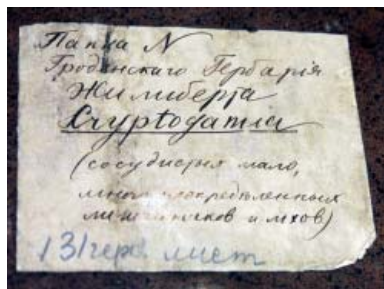 Папка N
Гродненскаго Гербарія
Жилиберта
Cryptogamia
(сосудистыхъ мало,
много неопредѣленныхъ
лишайниковъ и мховъ)
131 герб. лист